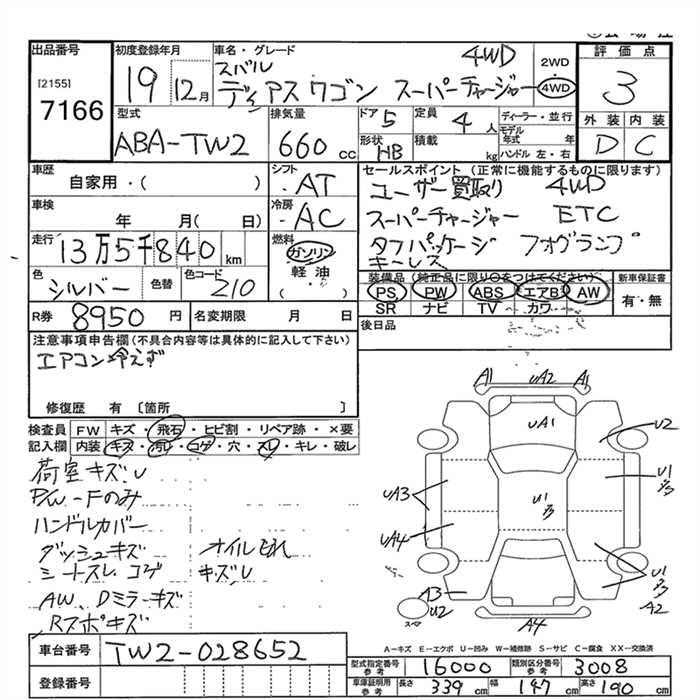 出品番号
[2155]
7166
初度登録年月
19 12月
車名・グレード
スバル 4WD
ディアスワゴン スーパーチャージャー
2WD
4WD
評価点
3
外装 内装
D C
型式
ABA-TW2
排気量
660 cc
ドア 5
形状 HB
定員 4 人
積載 kg
ディーラー・並行
モデル年式 年
ハンドル 左・右
車歴
自家用・( )
シフト
・AT
車検
年 月( 日)
冷房
・AC
走行
13万5千840 km
燃料
ガソリン
軽油
( ・ )
色
シルバー
色替
色コード
210
R券 8950 円
名変期限 月 日
セールスポイント(正常に機能するものに限ります)
ユーザー買取り 4WD
スーパーチャージャー ETC
タフパッケージ フォグランプ
キーレス
装備品(純正品に限り○をつけてください)
PS PW ABS エアB AW
SR ナビ TV カワ
新車保証書
有・無
後日品
注意事項申告欄(不具合内容等は具体的に記入して下さい)
エアコン冷えず
修復歴 有 〔箇所 〕
検査員 FW キズ・飛石・ヒビ割・リペア跡・×要
記入欄 内装 キズ・汚レ・コゲ・穴・スレ・キレ・破レ
荷室キズU
P/W-Fのみ
ハンドルカバー
ダッシュキズ オイルもれ
シートスレ、コゲ キズU
AW、Dミラーキズ
Rフポキズ
A1 UA2 A1
UA1
U2
UA3
U1
U1
UA4
A3
U2
スペア
U1
A2
A4
A-キズ E-エクボ U-凹み W-補修跡 S-サビ C-腐食 XX-交換済
車台番号 TW2-028652
登録番号
型式指定番号 参考 16000
類別区分番号 参考 3008
車庫証明用 参考 長さ 339 cm 幅 147 cm 高さ 190 cm